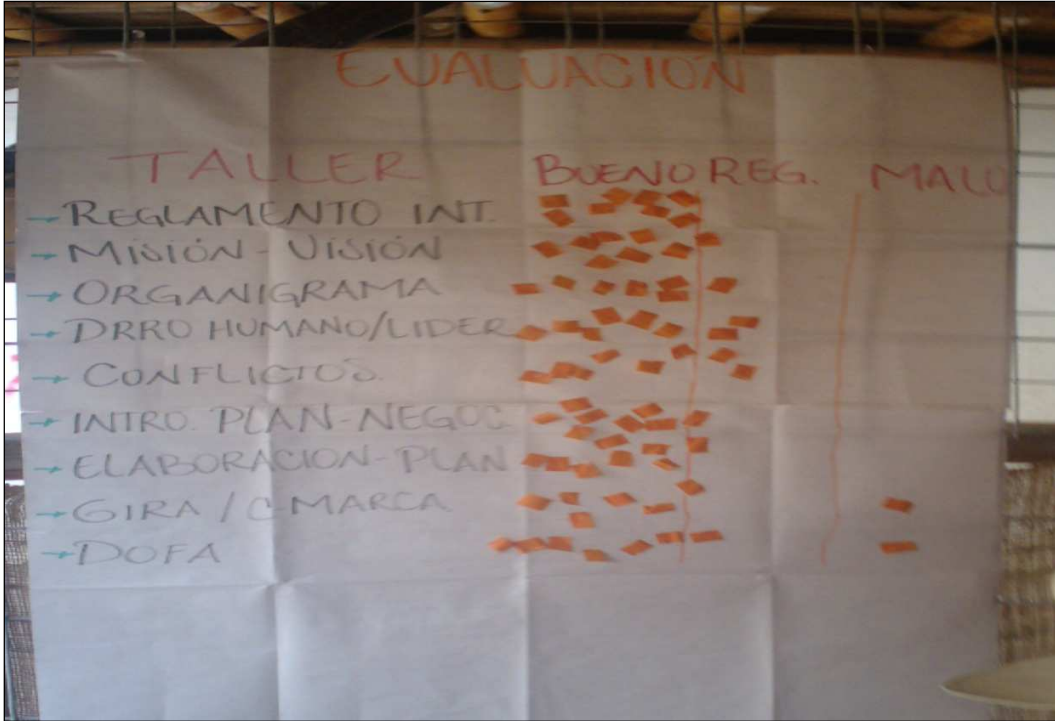 EVALUACIÓN
TALLER BUENO REG. MALO
→ REGLAMENTO INT.
→ MISIÓN - VISIÓN
→ ORGANIGRAMA
→ DRRO HUMANO/LIDER
→ CONFLICTOS.
→ INTRO. PLAN-NEGOC
→ ELABORACION-PLAN
→ GIRA / C-MARCA
→ DOFA